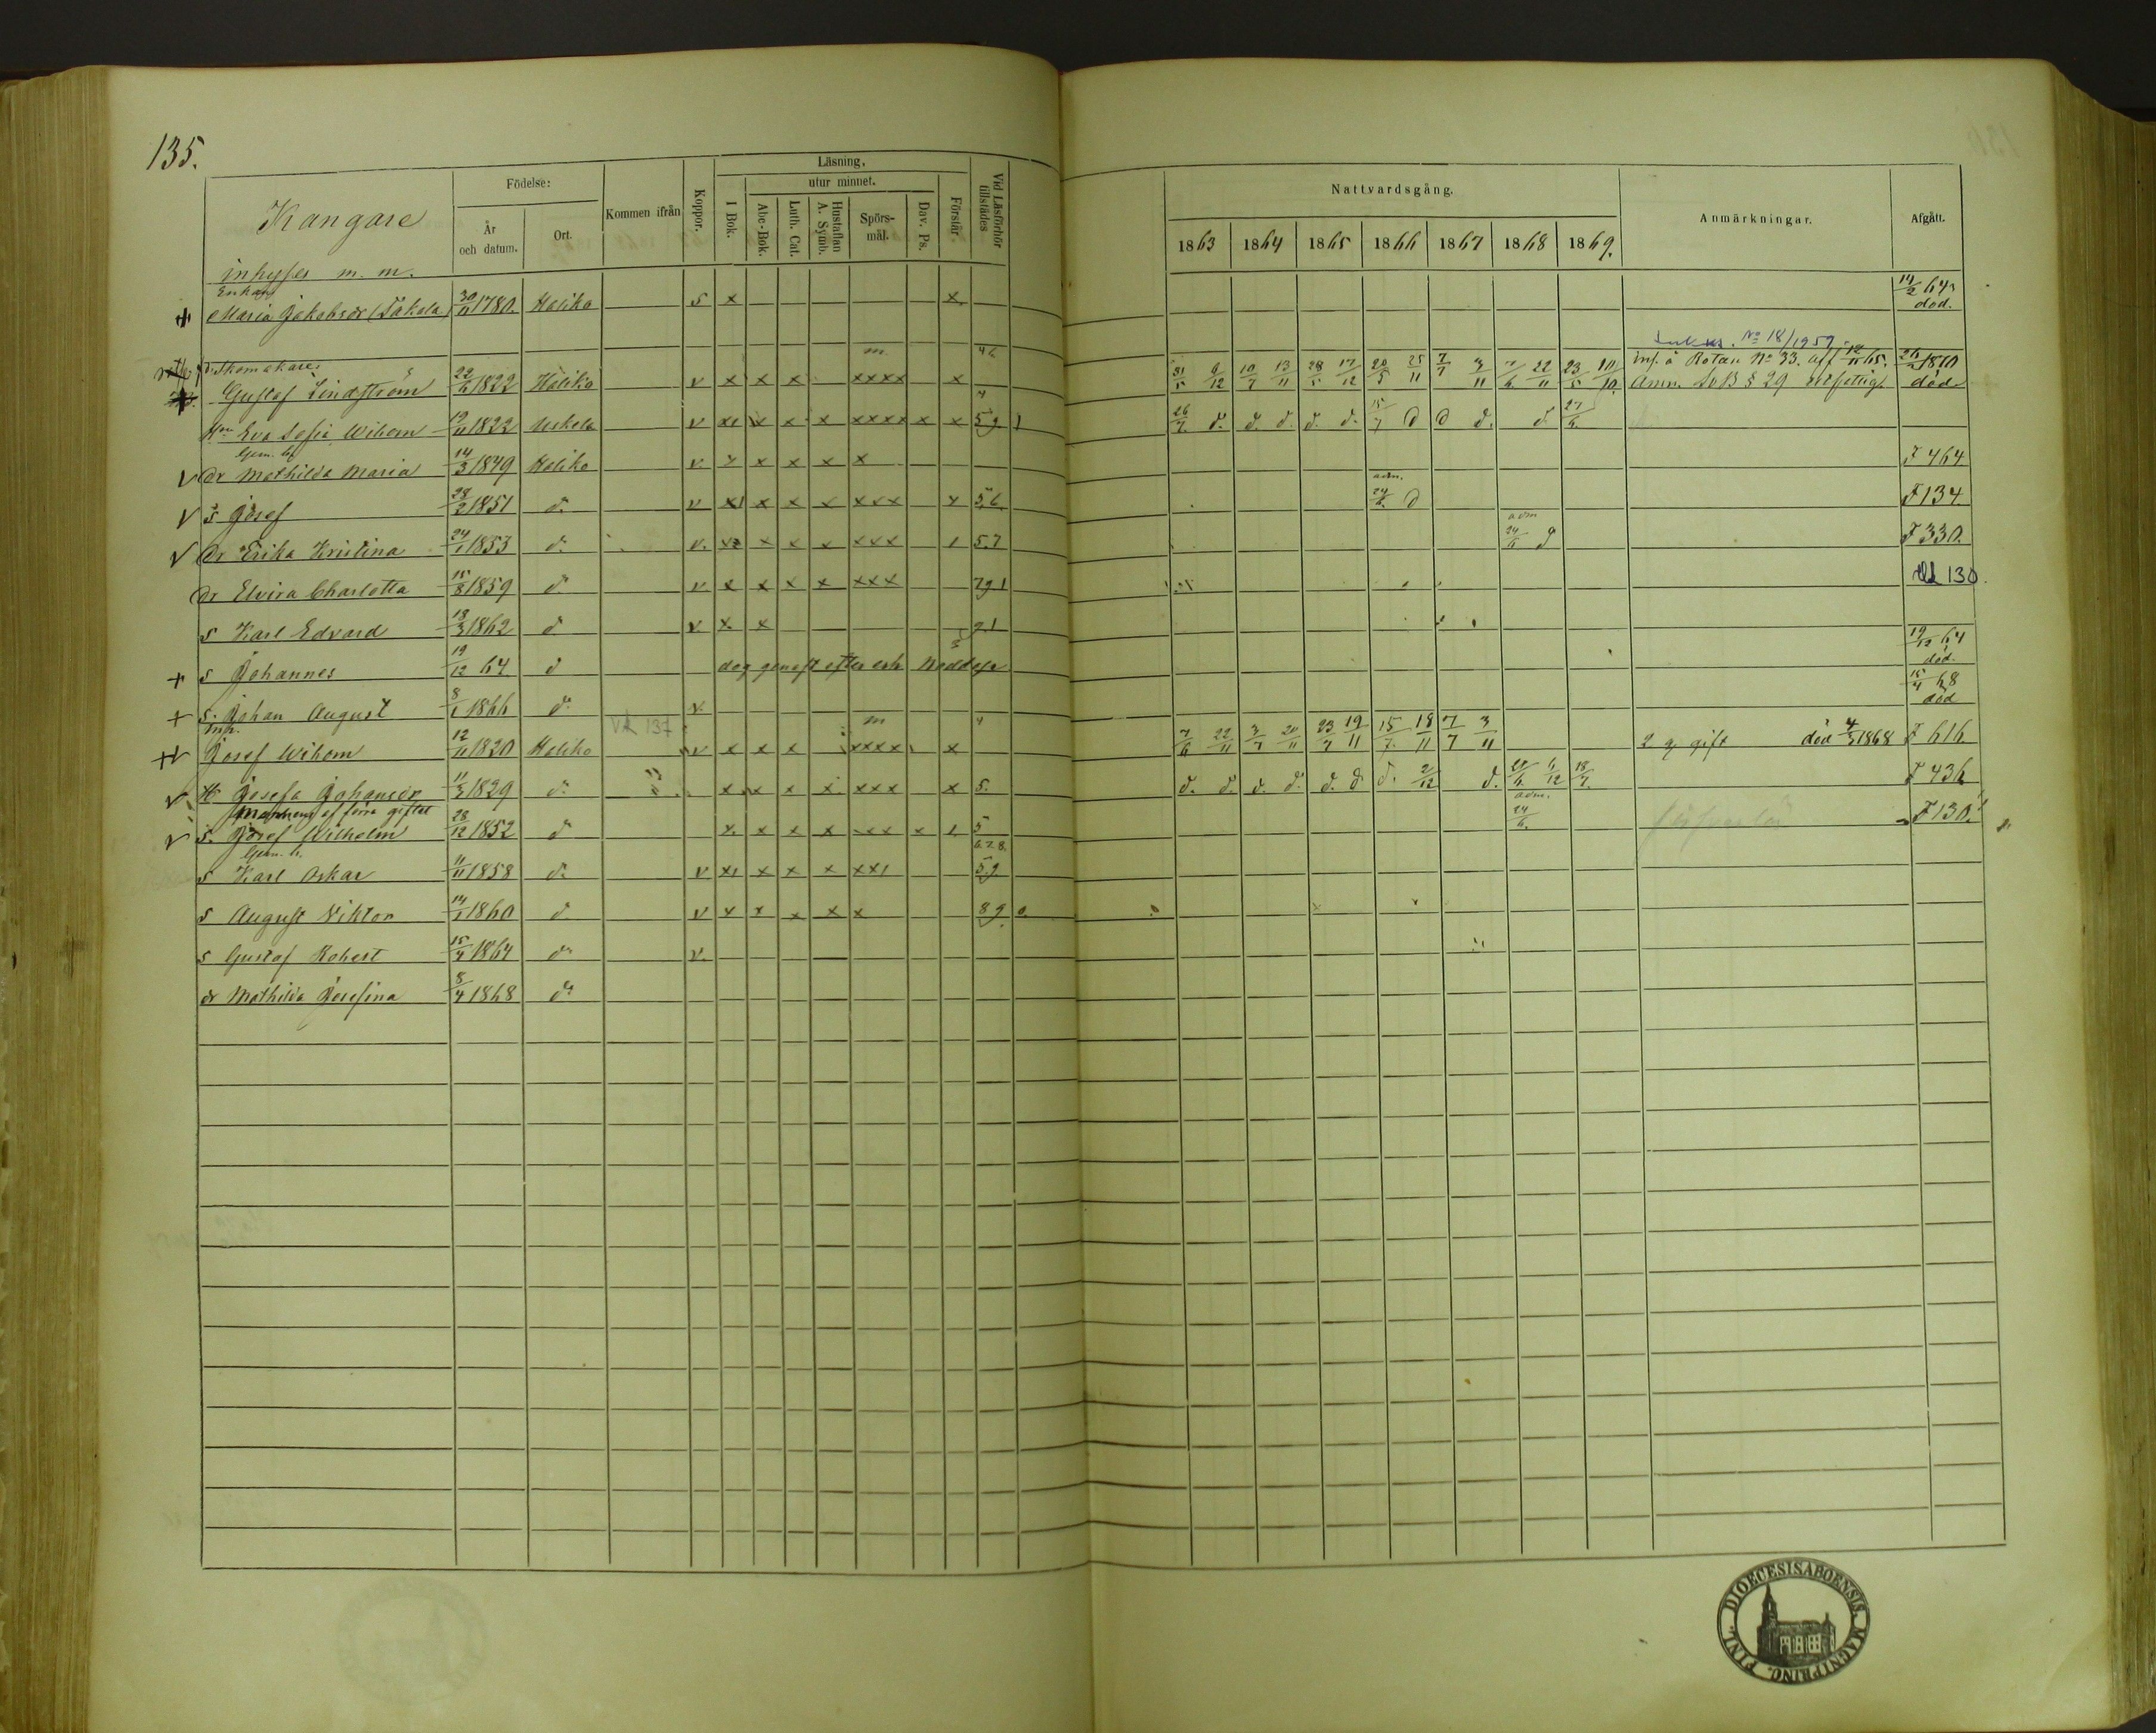 135.
Kangare
inhyses m. m.
Födelse:
År och datum.
Ort.
Kommen ifrån
Koppor.
Läsning.
I Bok.
utur minnet.
Abc-Bok.
Luth. Cat.
Hustaflan A. Symb.
Spörsmål.
Dav. Ps.
Förstår.
Vid Läsförhör tillstädes
Nattvardsgång.
1863 1864 1865 1866 1867 1868 1869.
Anmärkningar.
Afgått.
Enkan
+ Maria Jakobsdr (Takala) 30/11 1780. Haliko s x x 14/2 64 död.
No 18/1959
Skomakare m 46
Gustaf Lindström 22/6 1822 Haliko v x x x xxxx x 31/5 6/12 10/7 13/11 28/5 17/12 20/5 25/11 7/7 3/11 7/6 22/11 23/5 10/10 inf. å Rotan No 33. aff 12/11 65. § 29 26/2 1870 död
Hu Eva Sofia Wihom 19/11 1822 Uskela v x1 x x x xxxx x x 5.9 1 26/7 d. d. d. d. d. 15/7 d d d. d. 27/6
Gem. h.
v dr Mathilda Maria 14/3 1849 Haliko v. x x x x x F 464
v s Josef 28/2 1851 do v x1 x x x xxx x 5.6 adm. 24/6 d F 134
v dr Erika Kristina 24/1 1853 do v. x x x x xxx 1 5.7 adm 24/6 d F 330.
dr Elvira Charlotta 15/8 1859 do v x x x x xxx 7.9.1 130.
s Karl Edvard 18/3 1862 d v x x 9.1
+ s Johannes 19/12 64 d dog genast efter erh. Nöddop 19/12 64 död.
+ s. Johan August 8/1 1866 do v. 15/4 68 död
Inh. 137 m 4
+v Josef Wihom 12/11 1820 Haliko v x x x xxxx x 7/6 22/11 3/7 20/11 23/7 19/11 15/7 18/11 7/7 3/11 2 g gift död 4/3 1868 F 616
v H. Josefa Johansdr 11/3 1829 do x x x x xxx x 5. d. d. d. d. d. d. d. 2/12 d. 6/12 18/7 F 436
Mannens af förra giftet
v s. Josef Wilhelm 28/12 1852 d x x x x xxx x 1 5 6.7.8. adm. 24/6. F 130.
Gem. h.
s Karl Oskar 11/11 1858 do v x1 x x x xx1 5.9
s August Viktor 14/1 1860 d v x x x x x 8 9
s Gustaf Robert 15/4 1864 do v.
dr Mathilda Josefina 8/4 1868 do
DIOECESIS ABOENSIS. MAGNI PRINC. FINL.